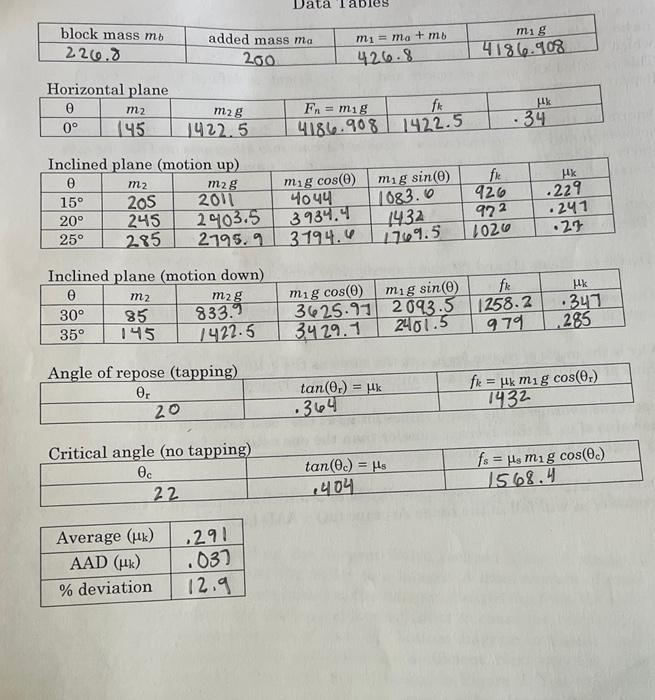 Data Tables
block mass mb added mass ma m1 = ma + mb m1 g
226.8 200 426.8 4186.908
Horizontal plane
θ m2 m2 g Fn = m1 g fk μk
0° 145 1422.5 4186.908 1422.5 .34
Inclined plane (motion up)
θ m2 m2 g m1 g cos(θ) m1 g sin(θ) fk μk
15° 205 2011 4044 1083.6 926 .229
20° 245 2403.5 3934.4 1432 972 .247
25° 285 2795.9 3794.6 1769.5 1026 .27
Inclined plane (motion down)
θ m2 m2 g m1 g cos(θ) m1 g sin(θ) fk μk
30° 85 833.9 3625.97 2093.5 1258.2 .347
35° 145 1422.5 3429.7 2401.5 979 .285
Angle of repose (tapping)
θr tan(θr) = μk fk = μk m1 g cos(θr)
20 .364 1432
Critical angle (no tapping)
θc tan(θc) = μs fs = μs m1 g cos(θc)
22 .404 1568.4
Average (μk) .291
AAD (μk) .037
% deviation 12.9